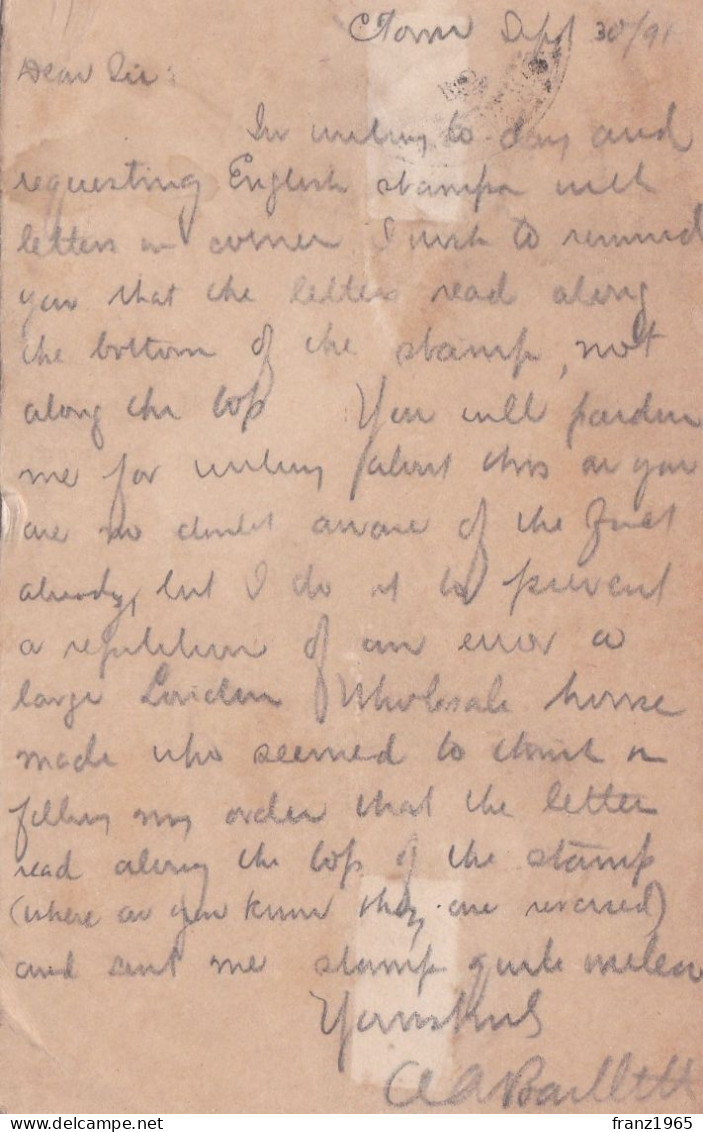 CTown Sept 30/91
Dear Sir:
In writing to day and
requesting English stamps with
letters in corner I wish to remind
you that the letters read along
the bottom of the stamp, not
along the top You will pardon
me for writing about this as you
are no doubt aware of the fact
already, but I do it to prevent
a repetition of an error a
large London Wholesale house
made who seemed to think in
filling my order that the letter
read along the top of the stamp
(where as you know they are reversed)
and sent me stamp quite
Yours truly
Bartlett
franz1965